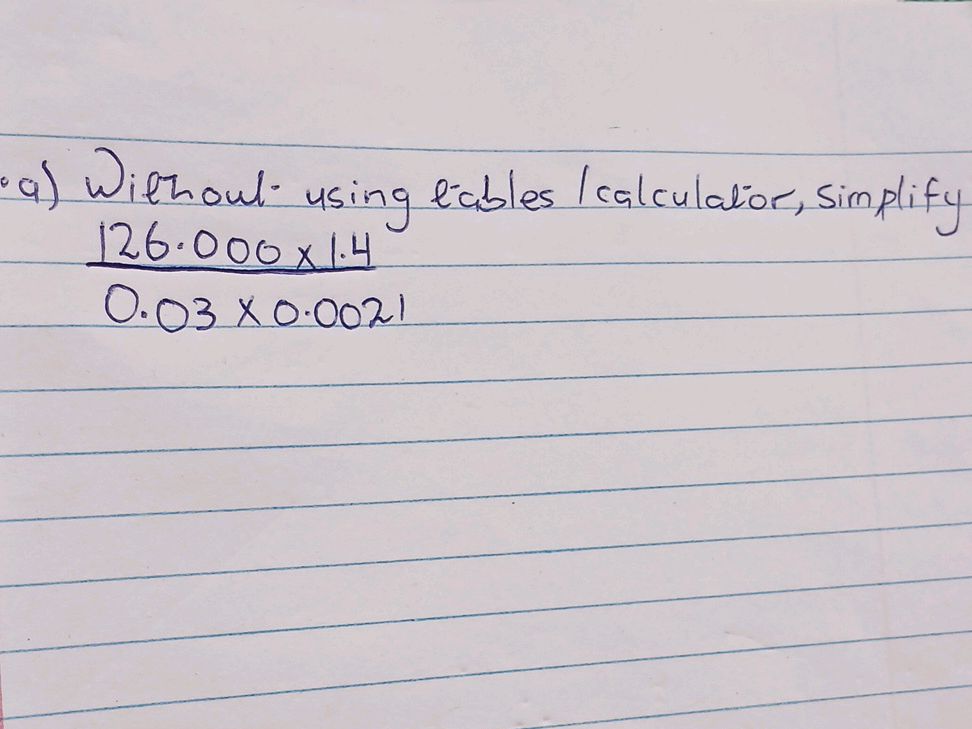 a) Without using tables / calculator, simplify
126.000 x 1.4
0.03 x 0.0021